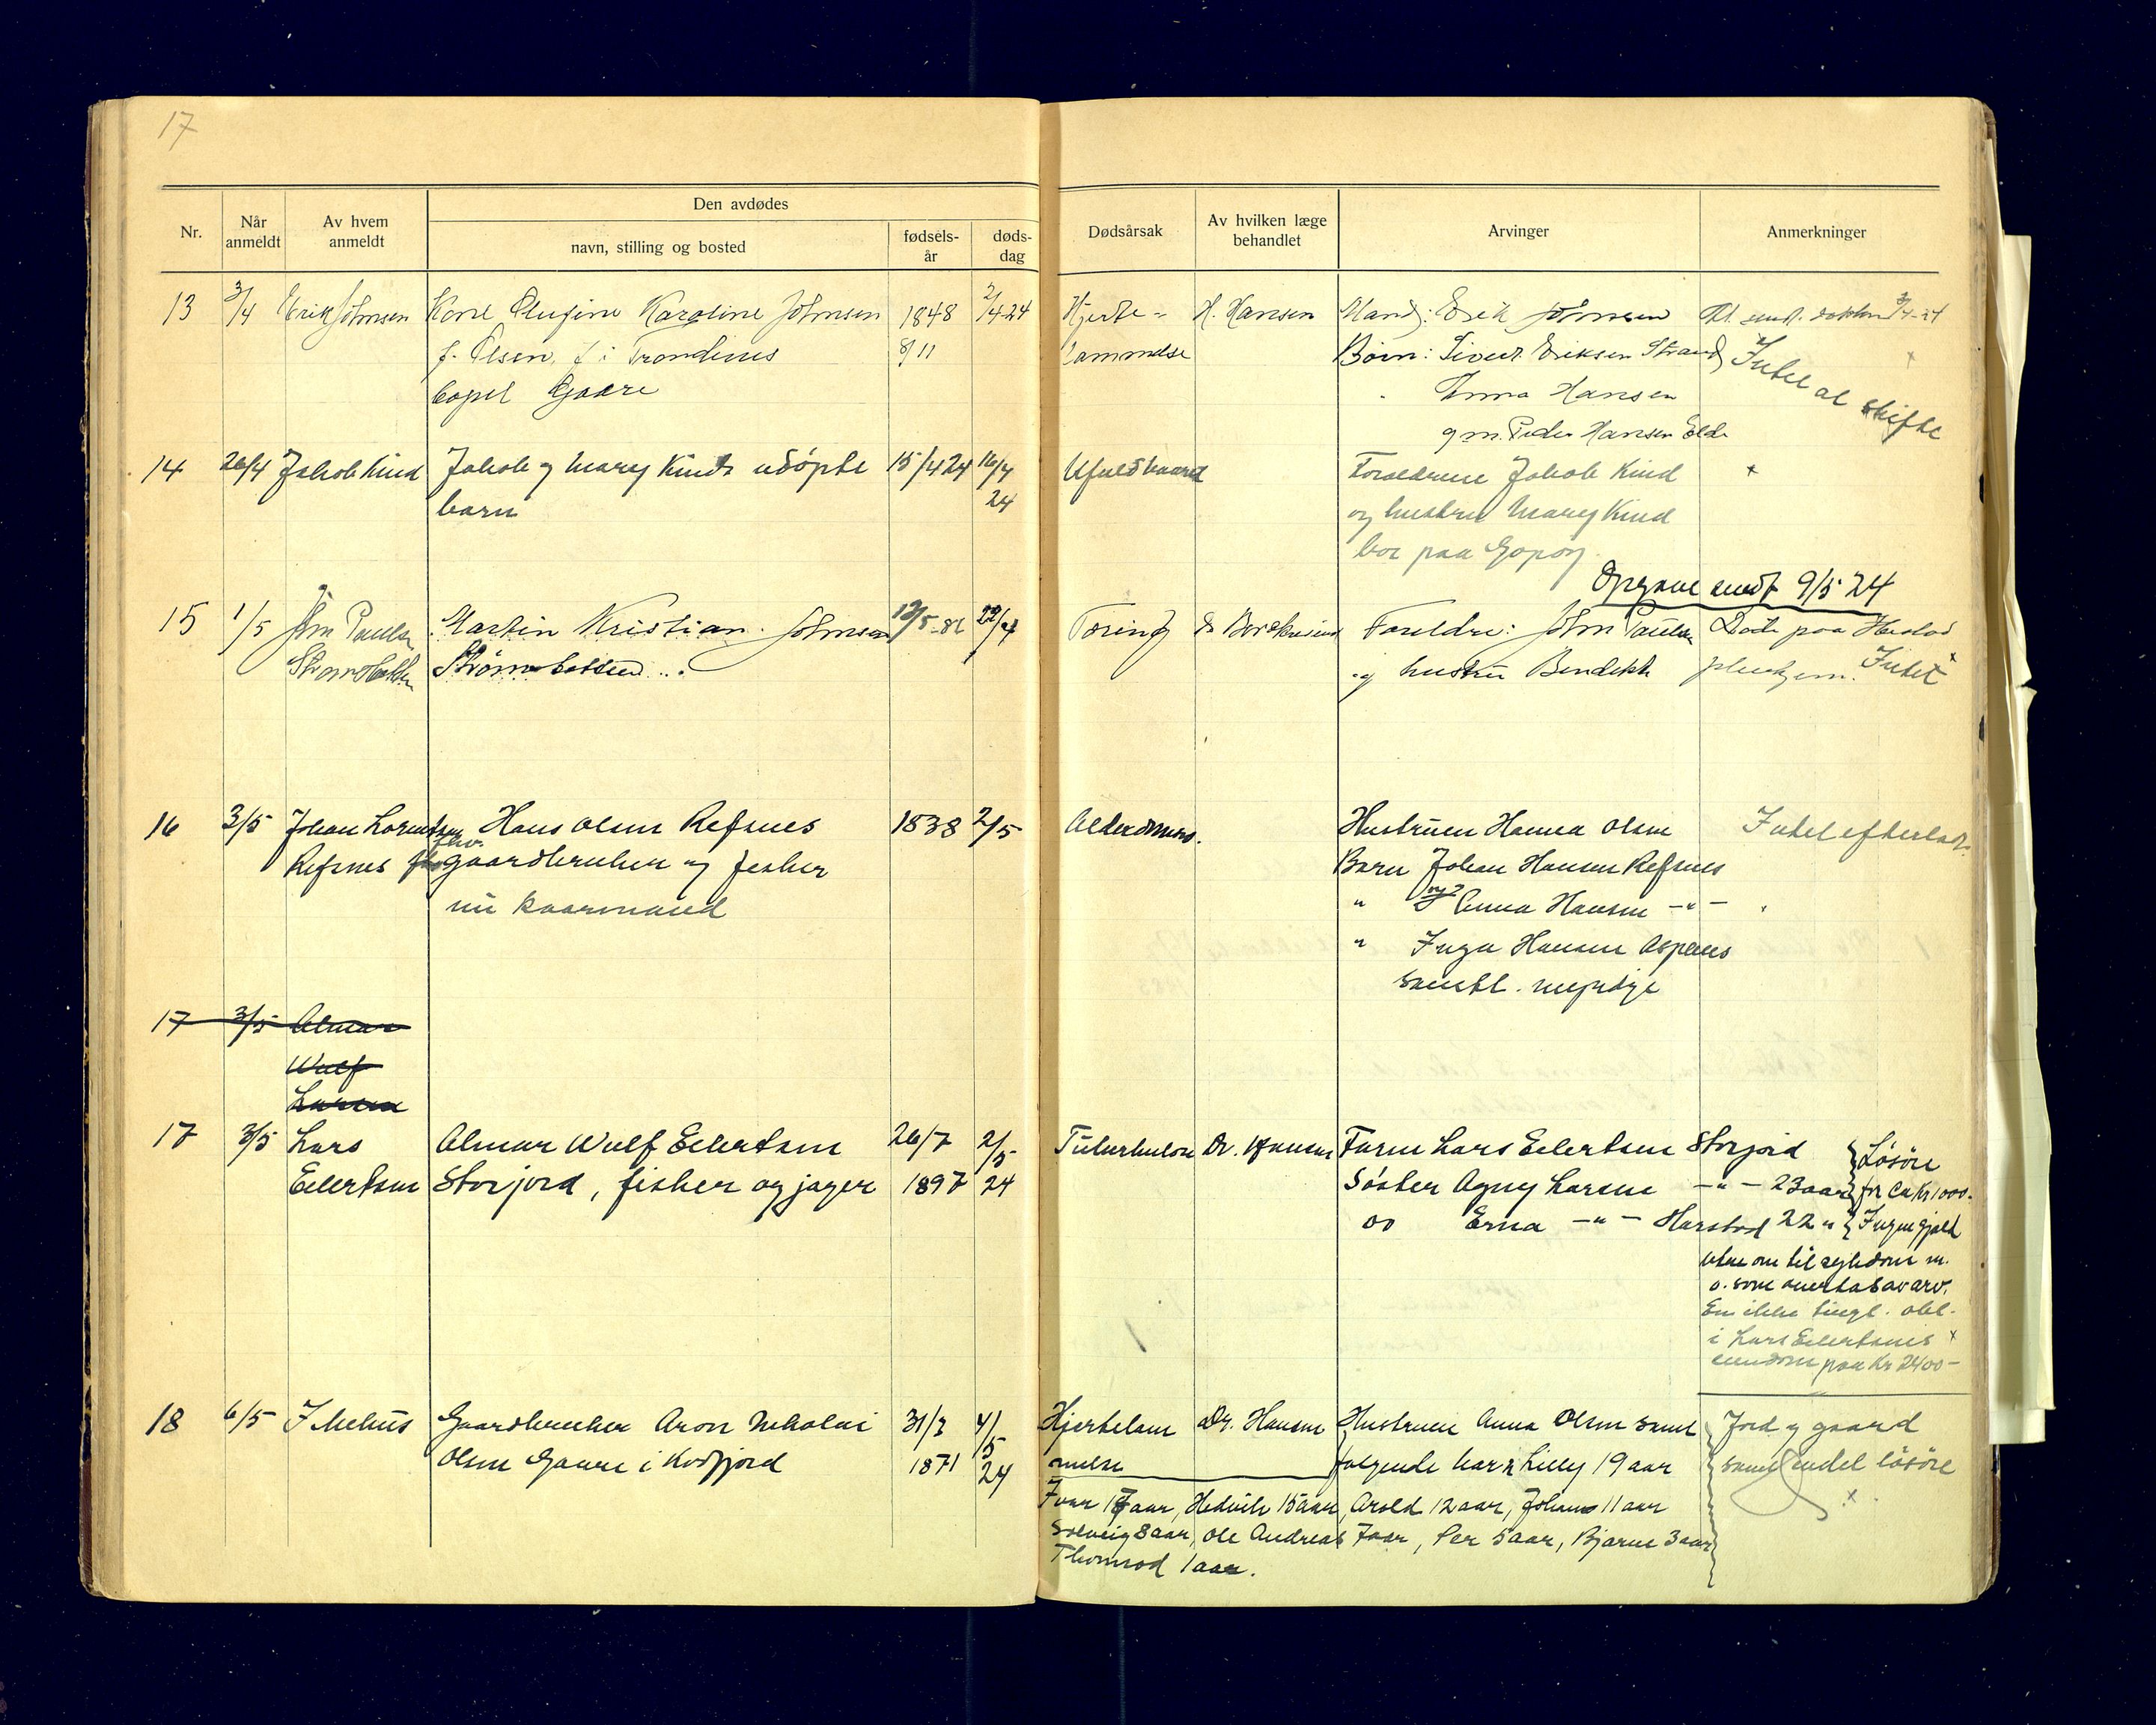 17
Nr.
Når anmeldt
Av hvem anmeldt
Den avdødes
navn, stilling og bosted
fødsels-år
døds-dag
Dødsårsak
Av hvilken læge behandlet
Arvinger
Anmerkninger
13 3/4 Erik Johnsen Karoline Johnsen 1848 2/4-24 Hjerte- H. Hansen Mand: Erik Johnsen
f. Olsen, f i Trondenes 8/11 lammelse Børn: Sivert Eriksen Strand Intet at skifte
Gaare Anna Hansen
g m. Peder Hansen Elde
14 26/4 Jakob Kind Jakob og Mary Kinds udöpte 15/4 24 16/4 Ufuldbaaret Foraeldrene Jakob Kind x
barn 24 og hustru Mary Kind
bor paa
Opgave sendt 9/5 24
15 1/5 John Paulsen Martin Kristian Johnsen 22/4 Tæring Foreldre: John Paulsen Døde paa Harstad
Strømsbotten Strømsbotten og hustru Bendikte pleiehjem. Intet x
16 3/5 Johan Lorentsen Hans Olsen Refsnes 1838 2/5 Alderdomss. Hustruen Hanna Olsen Intet efterlat.
Refsnes fhv. gaardbruker og fisker Barn Johan Hansen Refsnes
nu kaarmand " Anna Hansen -"-
" Inga Hansen Aspenes
samtl. myndige
17 3/5 Almar
Wulf
Larsen
17 3/5 Lars Almar Wulf Eilertsen 26/7 2/5 Tuberkulose Dr. Hansen Faren Lars Eilertsen Storjord Løsöre
Eilertsen Storjord, fisker og jæger 1897 24 Söster Agny Larsen -"- 23 aar for Ca Kr 1000.-
Do Erna -"- Harstad 22 " Ingen gjæld
uten om til sykedom m.
o. som overtas av arv.
En ikke tingl. obl.
i Lars Eilertsens x
eiendom paa Kr 2400-
18 6/5 Gaardbruker Aron Nikolai 31/3 4/5 Hjertelam Dr. Hansen Hustruen Anna Olsen samt Jord og gaard
Olsen Gaare i Kvæfjord 1871 24 melse følgende barn Lilly 19 aar samt endel lösöre
Ivar 17 aar, Hedvik 15 aar, Arold 12 aar, Johans 11 aar x
Solveig 8 aar, Ole Andreas 7 aar, Per 5 aar, Bjarne 3 aar
1 aar.